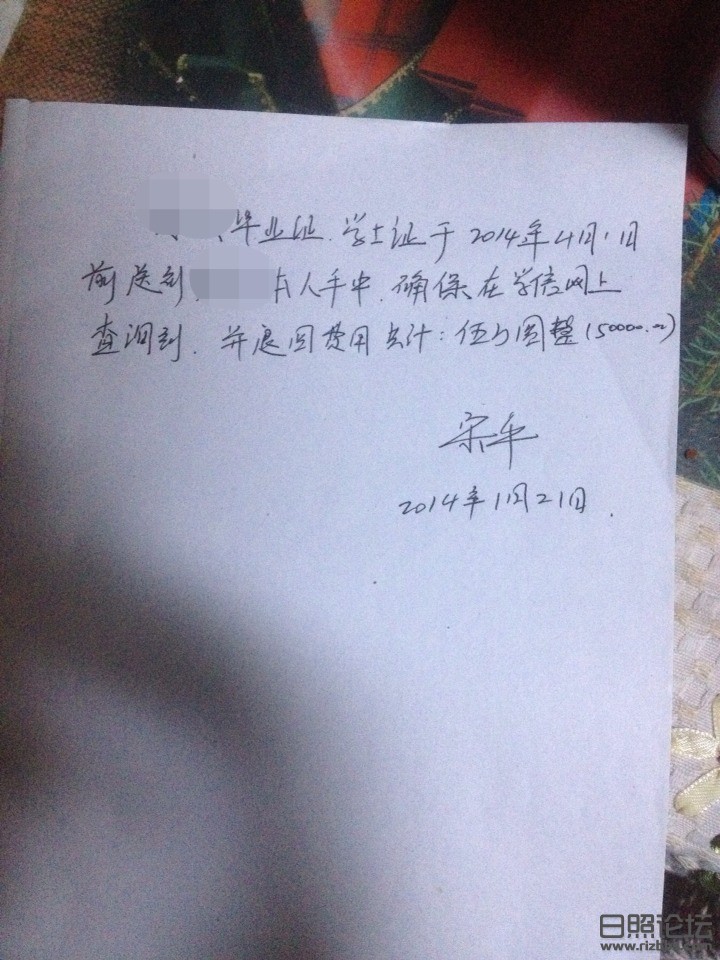 毕业证、学士证于2014年4月1日
前送到 本人手中,确保在学信网上
查询到,并退回费用共计:伍万圆整(50000.00)
宋平
2014年1月21日.
日照论坛